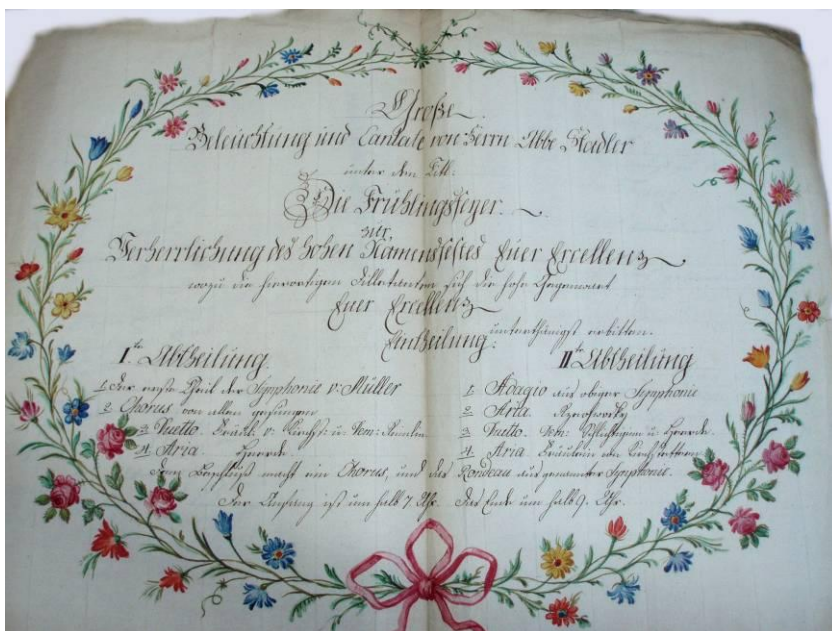 Große
Beleuchtung und Cantate von Herrn Abbe Stadler
unter dem Titl:
Die Frühlingsfeyer.
zur
Verherrlichung des hohen Namensfestes Euer Excellenz
wozu die hierortigen Dilletanten sich die hohe Gegenwart
Euer Excellenz
unterthänigst erbitten.
Eintheilung:
Ite Abtheilung.
1 Der erste Theil der Symphonie v: Müller
2 Chorus von allen gesungen
3 Duetto. v: u:
4 Aria.
IIte Abtheilung
1 Adagio aus obiger Symphonie
2 Aria
3 Duetto. u:
4 Aria Fräulein
Den macht ein Chorus, und das Rondeau aus genannter Symphonie.
Der Anfang ist um halb 7 Uhr. Das Ende um halb 9. Uhr.